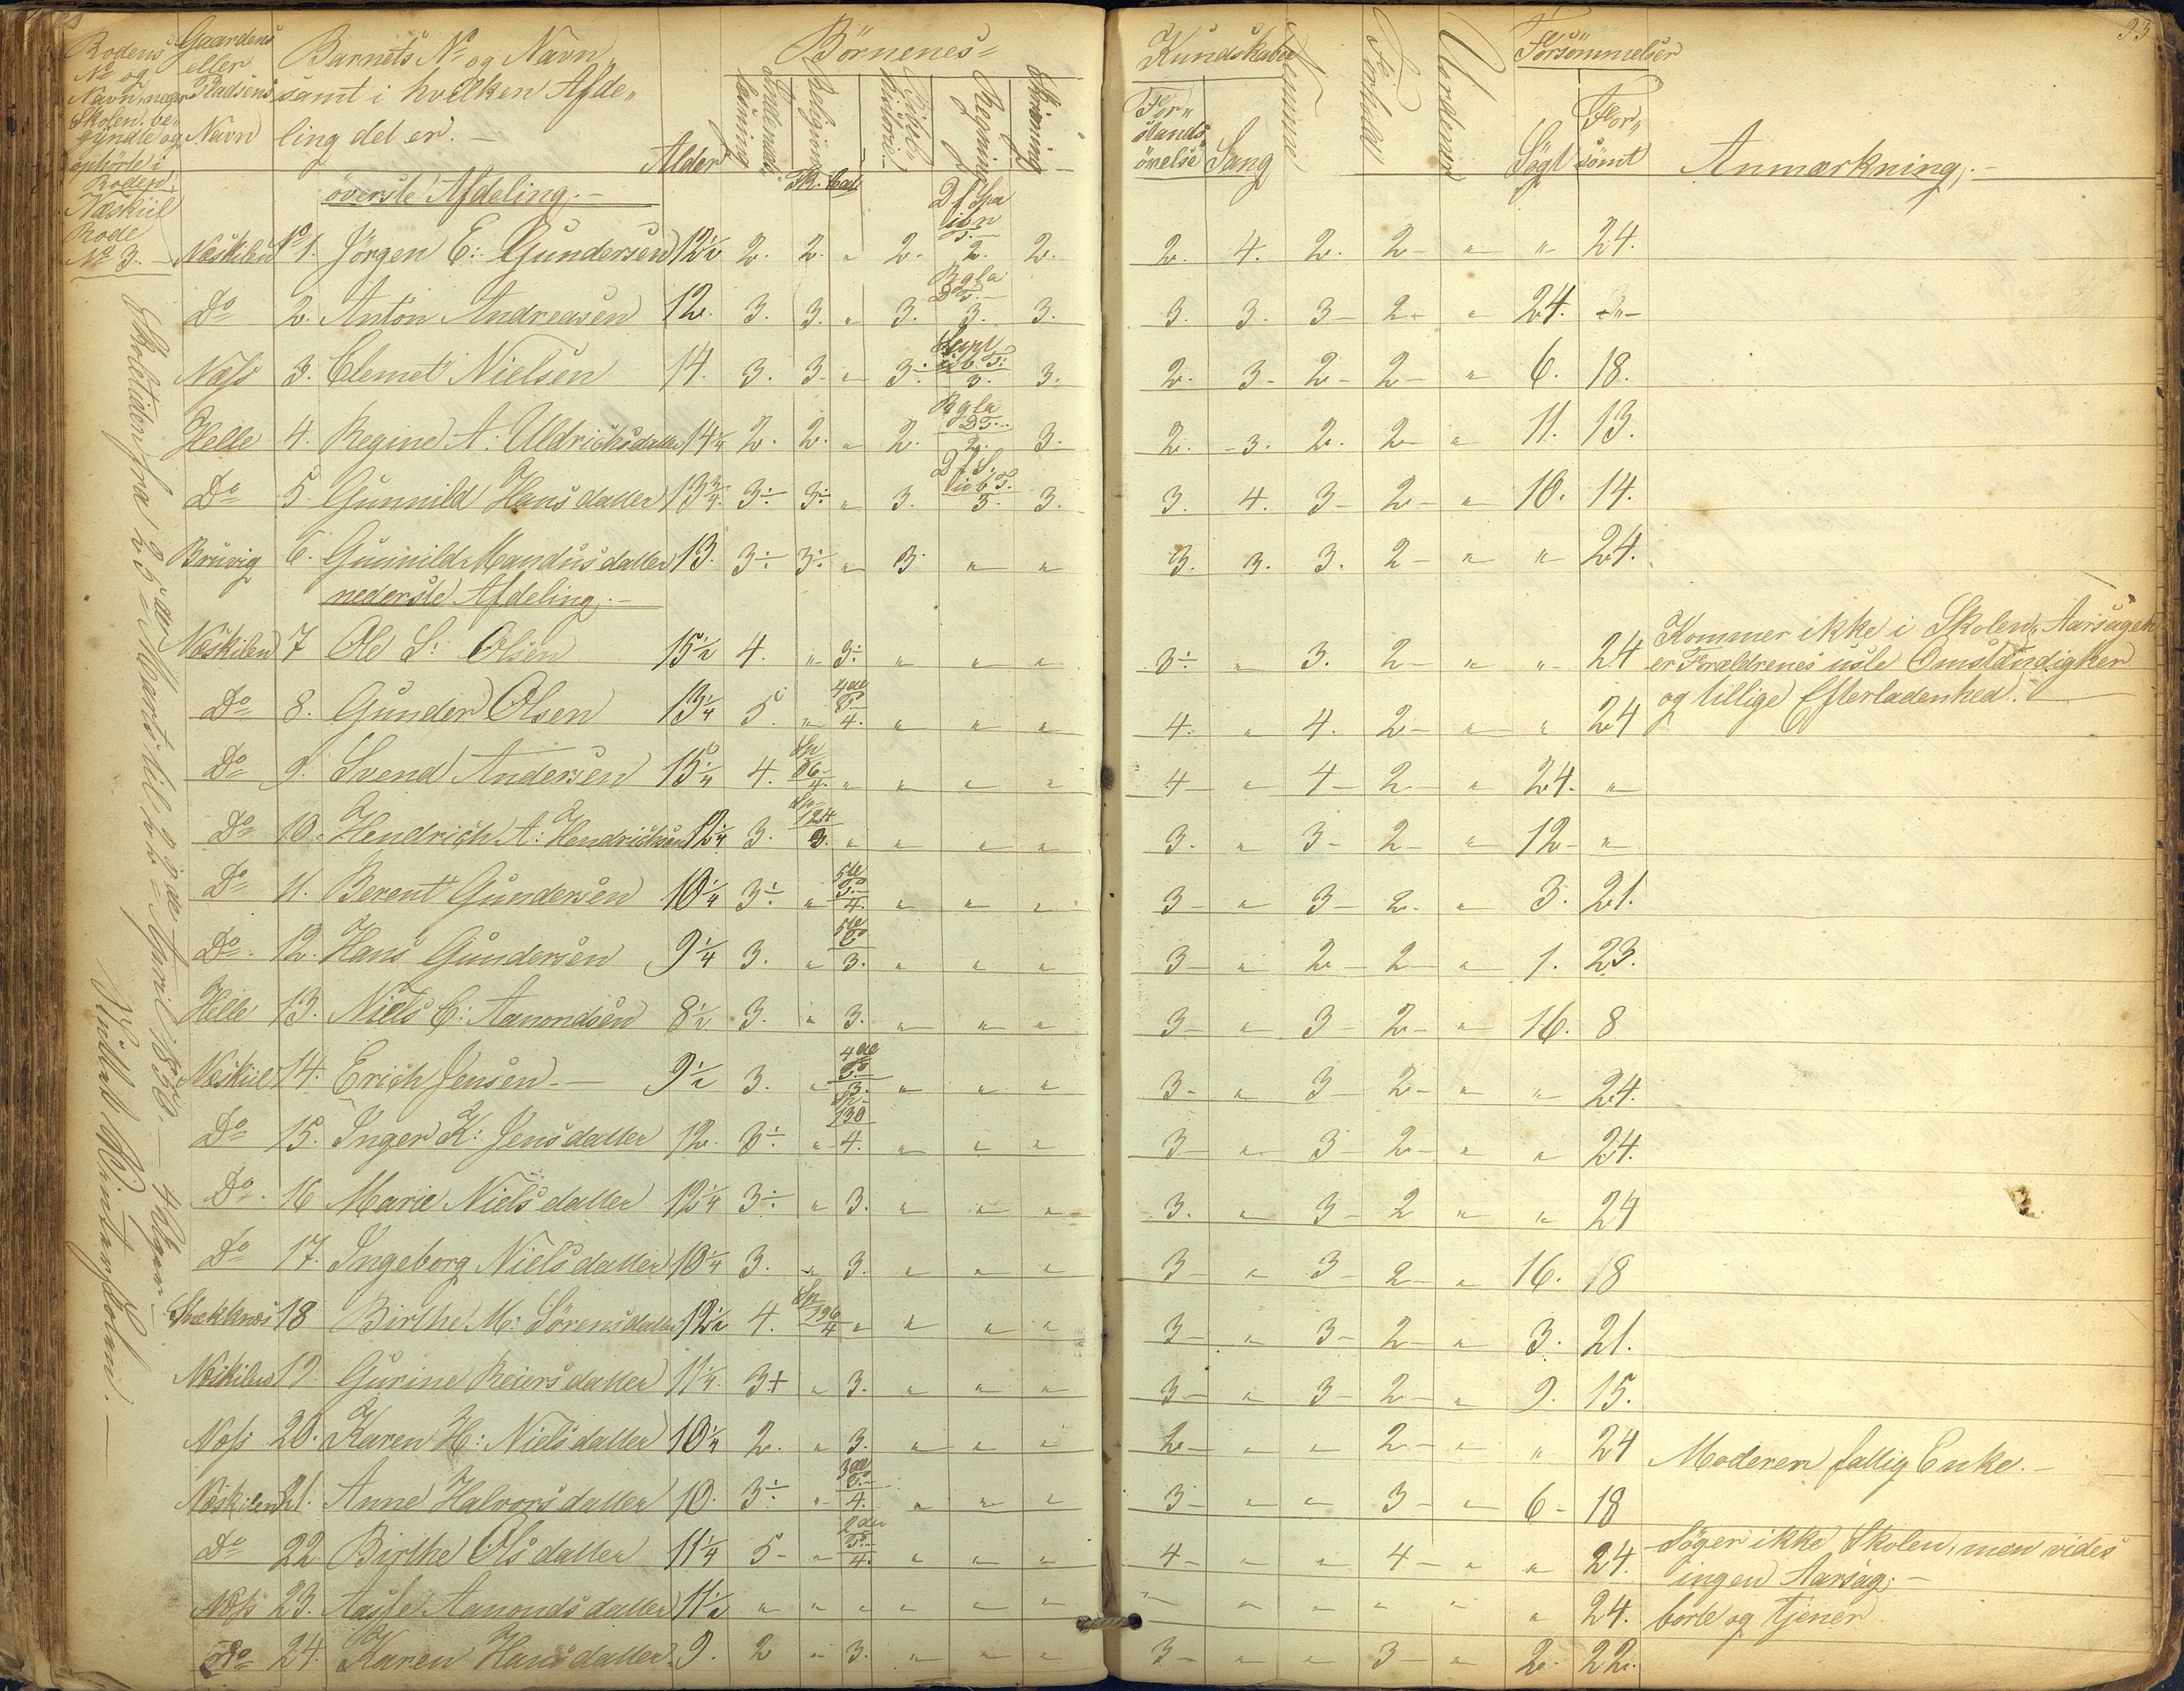 33
Rodens No og Navn, naar Skolen begyndte og ophörte i Roden
Gaardens eller Pladsens Navn
Barnets No og Navn samt i hvilken Afdeling det er.
Alder
Börnenes
Indenads Læsning
Religion
Bibelhistorie
Regning
Skrivning
Kundskaber
Forstandsövelse
Sang
Nemme
Forhold
Uordener
Forsömmelser
Sögt
Forsömt
Anmærkning.
överste Afdeling.
Næskiil Rode No 3.
Næskilen No 1. Jörgen E: Gundersen 12½ 2. 2. " 2. 2. 2. 2. 4. 2. 2 " " 24.
Do 2. Anton Andreasen 12. 3. 3. " 3. 3. 3. 3. 3. 3 2 " 24. "
Næss 3. Clemet Nielsen 14. 3. 3. " 3÷ 3. 3. 2. 3 2 2 " 6. 18.
Helle 4. Regine A: Uldrichsdatter 14¼ 2. 2. " 2. 2. 3. 2. 3. 2. 2 " 11. 13.
Do 5. Gunnild Hansdatter 13¾ 3÷ 3÷ " 3. 3. 3. 3. 4. 3 2 " 10. 14.
Bouvig 6. Gunnild Mandusdatter 13. 3÷ 3÷ " 3 " " 3. 3. 3. 2 " " 24.
nederste Afdeling.
Næskilen 7 Ole S: Olsen 15½ 4. " 3÷ " " " 3÷ " 3. 2 " " 24 Kommer ikke i Skolen, Aarsagen
er Forældrenes usle Omstændigheder
og tillige Efterladenhed.
Do 8. Gunder Olsen 13¼ 5. " 4. " " " 4. " 4. 2 " " 24
Do 9. Svend Andersen 15¼ 4. 4. " " " " 4 " 4 2 " 24. "
Do 10. Hendrich A: Hendrichsen 12¼ 3. 3. " " " " 3. " 3 2 " 12 "
Do 11. Berent Gundersen 10¼ 3÷ " 4. " " " 3 " 3 2. " 3. 21.
Do 12. Hans Gundersen 9¼ 3. " 3. " " " 3 " 2 2 " 1. 23.
Helle 13. Niels C: Aanondsen 8½ 3. " 3. " " " 3 " 3 2 " 16. 8
Næskiil 14. Erich Jensen 9½ 3. " 3. " " " 3 " 3 2 " " 24.
Do 15. Inger K: Jensdatter 12. 3÷ " 4. " " " 3 " 3 2 " " 24.
Do 16 Marie Nielsdatter 12¼ 3÷ " 3. " " " 3. " 3 2 " " 24
Do 17. Ingeborg Nielsdatter 10¼ 3. " 3. " " " 3 " 3 2 " 16. 18
18 Birthe M: Sörensdatter 12½ 4. 4 " " " " 3 " 3 2 " 3. 21.
Næskilen 19. Gurine Reiersdatter 11¼ 3+ " 3. " " " 3 " 3 2 " 9. 15.
Næss 20. Karen H: Nielsdatter 10¼ 2. " 3. " " " 2 " " 2 " " 24 Moderen fattig Enke.
Næskilen 21. Anne Halvorsdatter 10. 3÷ " 4. " " " 3 " " 3 " 6 18
Do 22 Birthe Olsdatter 11¼ 5 " 4. " " " 4 " " 4 " " 24. Söger ikke Skolen, men vides
ingen Aarsag.
Næss 23. Aasse Aanondsdatter 11½ " " " " " " " " " " " " 24. borte og tjener
Do 24. Karen Hansdatter 9. 2 " 3. " " " 3 " " 3 " 2 22.
Skoletiden fra 23de Marts til 22de April 1859. 4 Uger